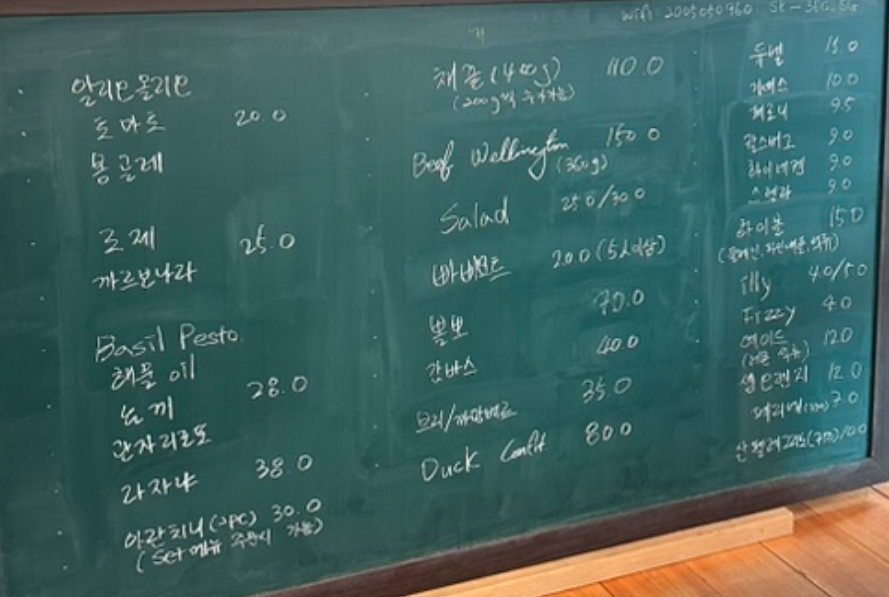 wifi: 2005050960
알리오올리오
토마토 20.0
봉골레
로제 25.0
까르보나라
Basil Pesto
해물 oil
뇨끼 28.0
관자리조또
라자냐 38.0
아란치니 (2pc) 30.0
(Set 메뉴 주문시 가능)
채끝 (400g) 110.0
(200g씩 추가가능)
Beef Wellington 150.0
(360g)
Salad 25.0/30.0
20.0 (5人이상)
뽈뽀 70.0
감바스 40.0
브리/까망베르 35.0
Duck Confit 80.0
두벨 15.0
기네스 10.0
페로니 9.5
칼스버그 9.0
하이네켄 9.0
스텔라 9.0
하이볼 15.0
illy 4.0/5.0
Fizzy 4.0
에이드 12.0
생오렌지 12.0
페리에 7.0
산펠레그리노 10.0